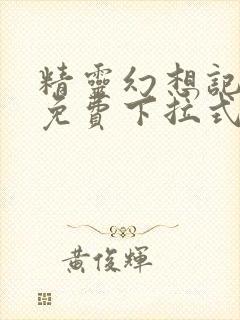 精靈幻想記
免費下拉式
黃俊輝